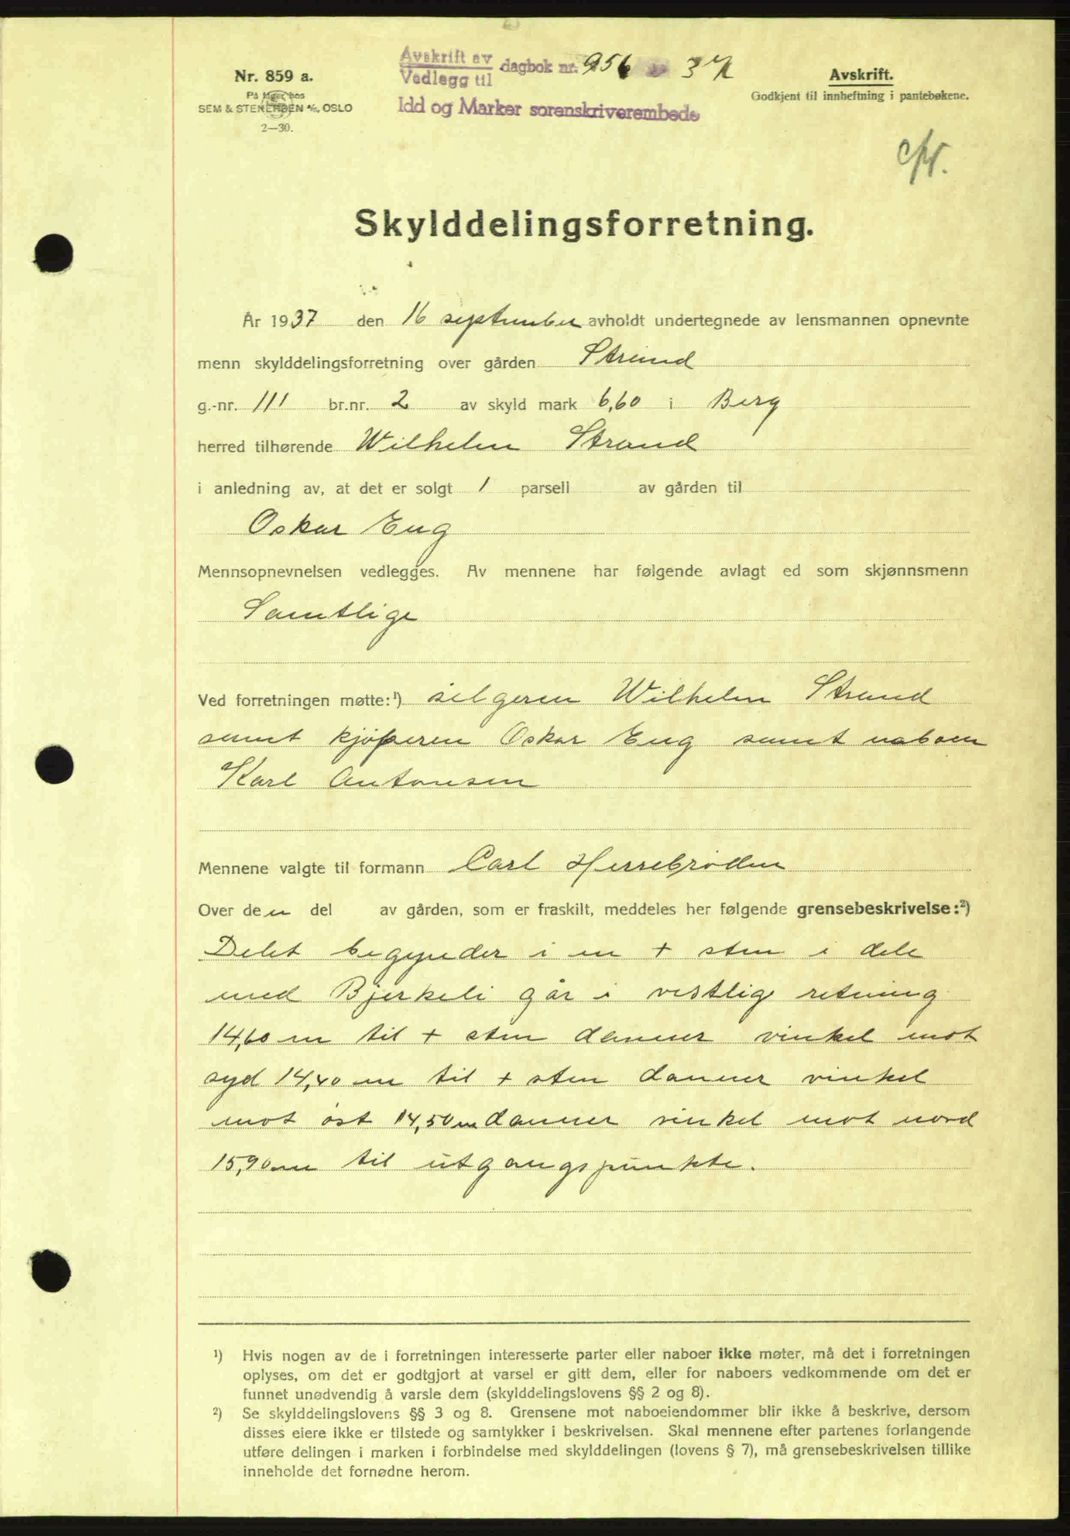 Nr. 859 a.
På lager hos
SEM & STENERSEN A/S, OSLO
2—30.
Avskrift av
Vedlegg til dagbok nr. 956 37
Idd og Marker sorenskriverembede
Avskrift.
Godkjent til innheftning i pantebøkene.
Skylddelingsforretning.
År 1937 den 16 september avholdt undertegnede av lensmannen opnevnte
menn skylddelingsforretning over gården Strand
g.-nr. 111 br.nr. 2 av skyld mark 6,60 i Berg
herred tilhørende Wilhelm Strand
i anledning av, at det er solgt 1 parsell av gården til
Oskar Eng
Mennsopnevnelsen vedlegges. Av mennene har følgende avlagt ed som skjønnsmenn
Samtlige
Ved forretningen møtte:¹) selgeren Wilhelm Strand
samt kjøperen Oskar Eng samt naboen
Karl Antonsen
Mennene valgte til formann Carl Herrebrøden
Over den del av gården, som er fraskilt, meddeles her følgende grensebeskrivelse:²)
Delet begynder i en + sten i dele
med Bjerkeli går i vestlig retning
14,60 m til + sten danner vinkel mot
syd 14,40 m til + sten danner vinkel
mot øst 14,50 m danner vinkel mot nord
15,90 m til utgangspunkte.
¹) Hvis nogen av de i forretningen interesserte parter eller naboer ikke møter, må det i forretningen
oplyses, om det er godtgjort at varsel er gitt dem, eller for naboers vedkommende om det er
funnet unødvendig å varsle dem (skylddelingslovens §§ 2 og 8).
²) Se skylddelingslovens §§ 3 og 8. Grensene mot naboeiendommer blir ikke å beskrive, dersom
disses eiere ikke er tilstede og samtykker i beskrivelsen. Skal mennene efter partenes forlangende
utføre delingen i marken i forbindelse med skylddelingen (lovens § 7), må grensebeskrivelsen tillike
inneholde det fornødne herom.